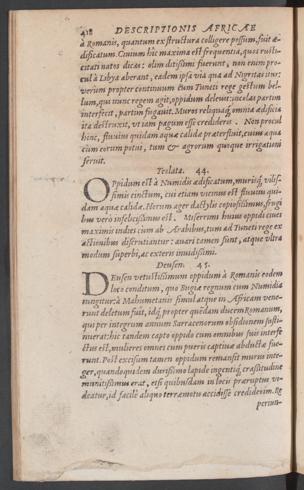 418 DESCRIPTIONIS AFRICAE
à Romanis, quantum ex structura colligere possum, fuit æ-
dificatum. Ciuium hic maxima est frequentia, quos rusti-
citati natos dicas: olim ditissimi fuerunt, non enim pro-
cul à Libya aberant, eadem ipsa via qua ad Nigritas itur:
verùm propter continuum cum Tuneti rege gestum bel-
lum, qui nunc regem agit, oppidum deleuit: incolas partim
interfecit, partim fugauit. Muros reliquaq́ omnia ædificia
ita destruxit, vt iam pagum esse credideris. Non procul
hinc, fluuius quidam aquæ calidæ præterfluit, cuius aqua
cùm eorum potui, tum & agrorum quoque irrigationi
seruit.
Teolata. 44.
OPpidum est à Numidis ædificatum, muriq́ vilis-
simis cinctum, cui etiam vicinus est fluuius qui-
dam aquæ calidæ. Horum ager dactylis copiosissimus, frugi
bus verò infelicissimus est. Miserrimi huius oppidi ciues
maximis indies cum ab Arabibus, tum ad Tuneti rege ex
actionibus discruciantur: auari tamen sunt, atque vltra
modum superbi, ac exteris inuidissimi.
Deusen. 45.
DEusen vetustissimum oppidum à Romanis eodem
loco conditum, quo Bugiæ regnum cum Numidia
iungitur: à Mahumetanis simul atque in Africam vene-
runt deletum fuit, idq́ propter quendam ducem Romanum,
qui per integrum annum Sarracenorum obsidionem susti-
nuerat: hic tandem capto oppido cum omnibus suis interfe
ctus est, mulieres omnes cum pueris captiuæ abductæ fue-
runt. Post excisum tamen oppidum remansit murus inte-
ger, quandoquidem durissimo lapide ingentiq́ crassitudine
munitissimus erat, etsi quibusdam in locis praruptus vi-
deatur, id facilè aliquo terræmotu accidisse crediderim. Re
periun-